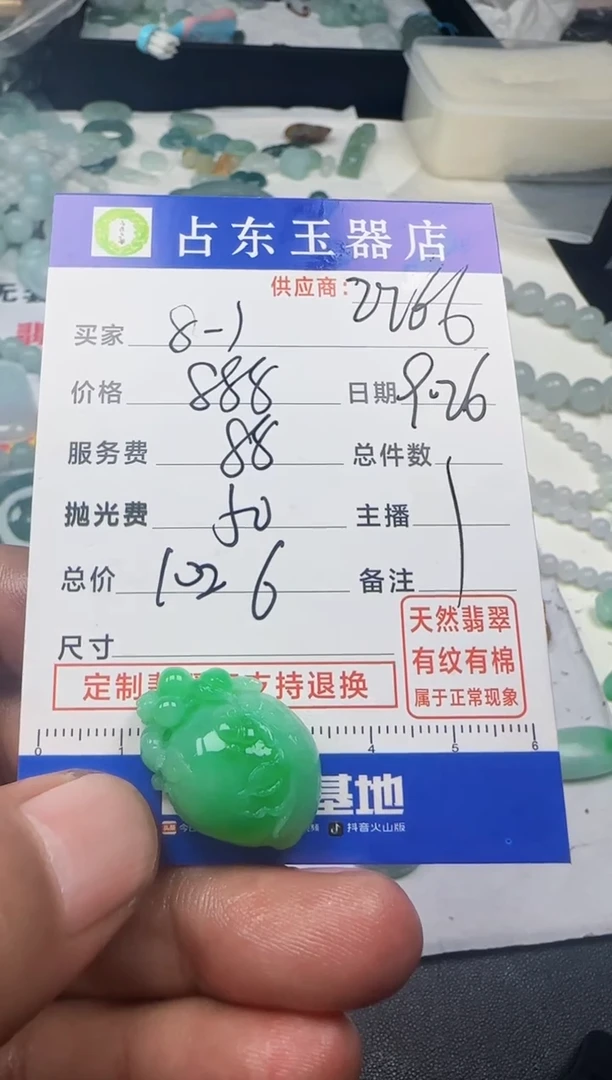 占东玉器店
供应商: 2766
买家 8-1
价格 888 日期 9.26
服务费 88 总件数 1
抛光费 50 主播
总价 1026 备注
尺寸
天然翡翠
有纹有棉
属于正常现象
定制 支持退换
0 1 4 5 6
基地
抖音火山版